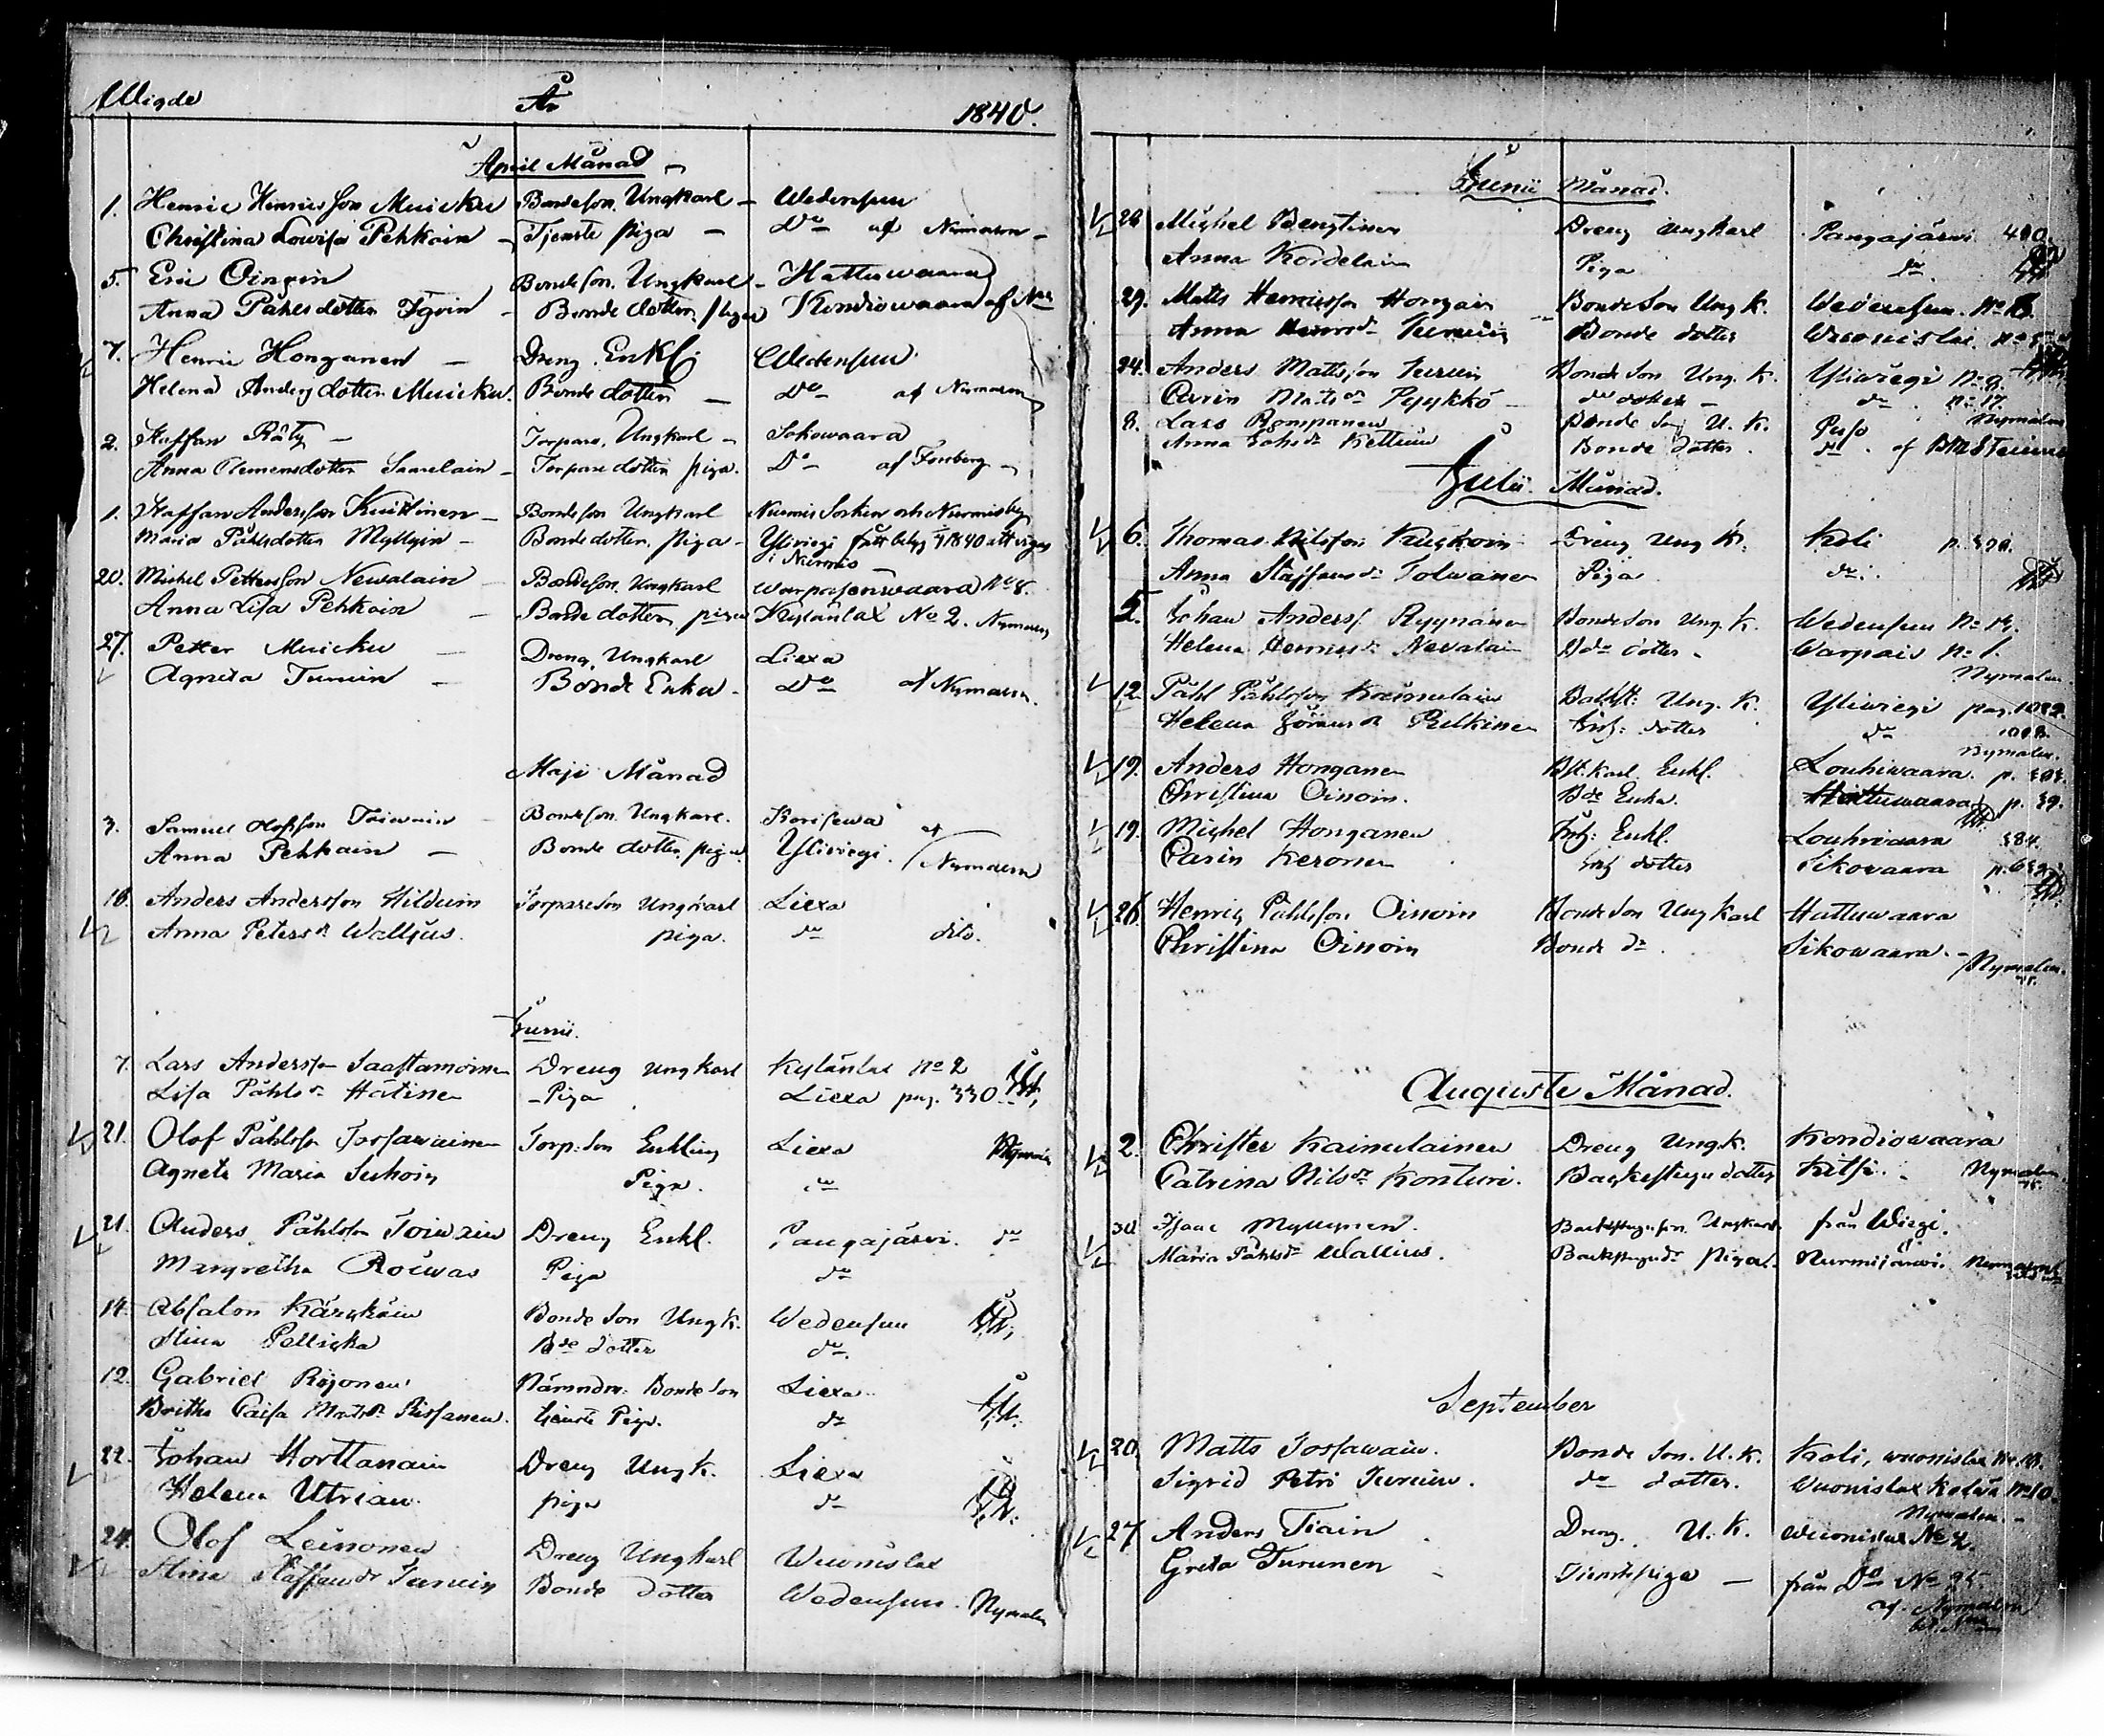 Wigde År 1840.
April Månad
1. Henric Henricsson Muicku Bondeson, Ungkarl Wedensuu
Christina Lowisa Pehkoin Tjenste piga Do af Nymalm
5. Eric Oinoin Bondeson, Ungkarl Hattuwaara
Anna Påhlsdotter Bonde dotter, piga Kondiowaara af
7. Henric Honganen Dreng Enkl. Wedensuu
Helena Anders dotter Muicku Bonde dotter Do af Nymalm
2. Staffan Räty Torpare, Ungkarl Sokowaara
Anna Clemensdotter Saarelain Torpare dotter piga. Do af Forsberg
1. Staffan Andersson Kuittinen Bondeson Ungkarl Nurmis Socken och Nurmisby
Maria Påhlsdotter Myllyin Bondedotter, piga Yliwiegi fått betyg 1840 att vigas
i Nurmis
20. Michel Pettersson Newalain Bondeson, Ungkarl Warpaisenwaara No 8.
Anna Lisa Pehkoin Bonde dotter, piga Kylänlax No 2. Nymalm
27. Petter Muicku Dreng, Ungkarl Liexa
Agneta Turuin Bonde Enka Do af Nymalm.
Maji Månad
3. Samuel Olofsson Toiwain Bondeson, Ungkarl. Korisewa
Anna Pehkain Bonde dotter, piga. Yliwiegi. af Nymalm
16. Anders Andersson Hilduin Torpareson Ungkarl Liexa
Anna Petersdr Wallius. piga. do dito.
Junii.
7. Lars Andersson Saastamoinen Dreng Ungkarl Kylänlax No 2
Lisa Påhlsdr Hätinen Piga Liexa pag. 330
21. Olof Påhlsson Torp. Son Enkling Liexa Nymalm
Agneta Maria Suhoin Piga. do
21. Anders Påhlsson Toiwain Dreng Enkl. Pangajärwi. do
Margretha Roiwas Piga do
14. Absalon Kärykäin Bonde Son Ungk. Wedensuu
Stina Pellicka Bde dotter do.
12. Gabriel Nämndm. Bonde Son Liexa
Britha Caisa Matsdr Rissanen. tjenste Piga. do
22. Johan Horttanain Dreng Ungk. Liexa
Helena Utriain piga do
24. Olof Leinonen Dreng Ungkarl Wuonislax
Stina Staffansdr Turuin Bonde dotter Wedensuu. Nymalm
Junii Månad.
28 Michel Bengtinen Dreng Ungkarl Pangajärwi 400
Anna Kordelain Piga do
29. Matts Henricsson Hongain Bonde Son Ung K. Wedensuu. No
Anna Turuin Bonde dotter Wuonislax
24. Anders Mattsson Turuin Bonde Son Ung. K. Yliwiegi No 8.
Carin Matsdr Pyykkö do dotter do No 17. Nymalm
8. Lars Romppanen Bonde Son U. K. Puso
Anna Johsdr Kettuin Bonde dotter. do. af
Julii Månad.
6. Thomas Nilsson Dreng Ung K. Koli
Anna Staffansdr Tolwanen Piga do.
5. Johan Anderss. Ryynänen Bonde Son Ung. K. Wedensuu No 14.
Helena Henricsdr Nevalai Bde dotter Warpais No 1. Nymalm
12 Påhl Påhlsson Kaimulain Ung. K. Yliwiegi pag. 1082.
Helena Göransdr dotter do 1008. Nymalm.
19. Anders Honganen Bst. karl Enkl. Louhiwaara p.
Christina Oinoin. Bde Enka. Hattuwaara p. 39.
19. Michel Honganen Enkl. Louhiwaara 584.
Carin Keronen dotter Sikowaara
26. Henric Påhlsson Oinoin Bonde Son Ungkarl Hattuwaara
Christina Oinoin Bonde dr. Sikowaara. Nymalm.
Augusti Månad.
2. Christer Kaimulainen Dreng Ungk. Kondiowaara
Catrina Nilsdr Konturi. Backestugu dotter Kitsi. Nymalm
30 Isaac Myllynen. Backstuguson Ungkarl från Wiegi.
Maria Påhlsdr Wallius. Backstugudr Piga. Nurmijärwi. Nymalm
September
20. Matts Bonde Son. U. K. Koli, wuonislax No 18.
Sigrid Petri Turuin. do dotter. Wuonislax No 10. Nymalm
27 Anders Tiain Dreng. U. K. Wuonislax No 2.
Greta Turunen Tienstepiga från Do No 25
af Nymalm